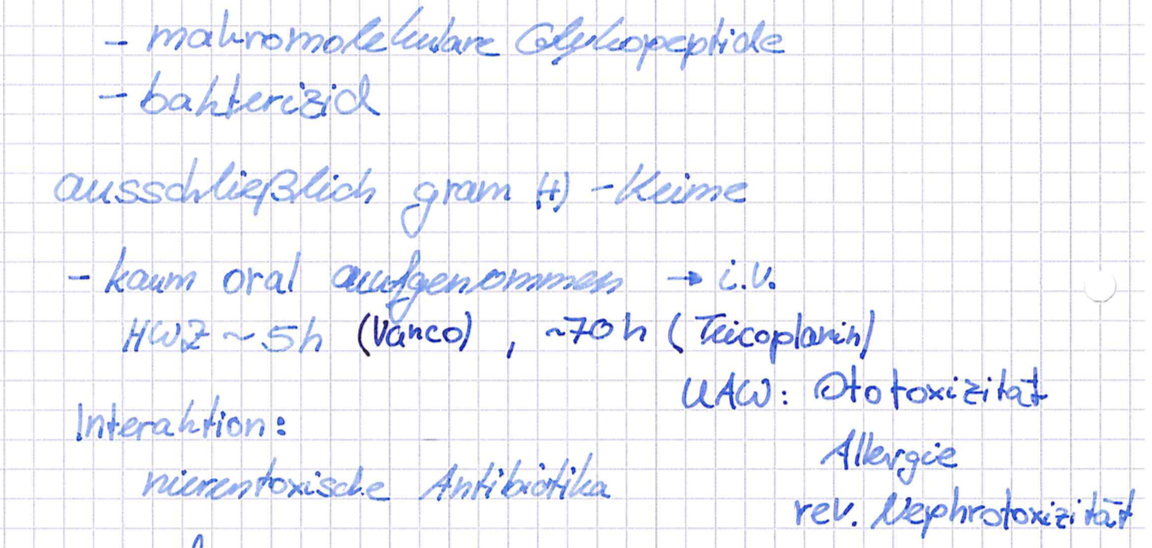 - makromolekulare Glykopeptide
- bakterizid
ausschließlich gram (+) - Keime
- kaum oral aufgenommen → i.v.
HWZ ~ 5h (Vanco) , ~70h (Teicoplanin)
UAW: Ototoxizität
Interaktion:
Allergie
nierentoxische Antibiotika
rev. Nephrotoxizität